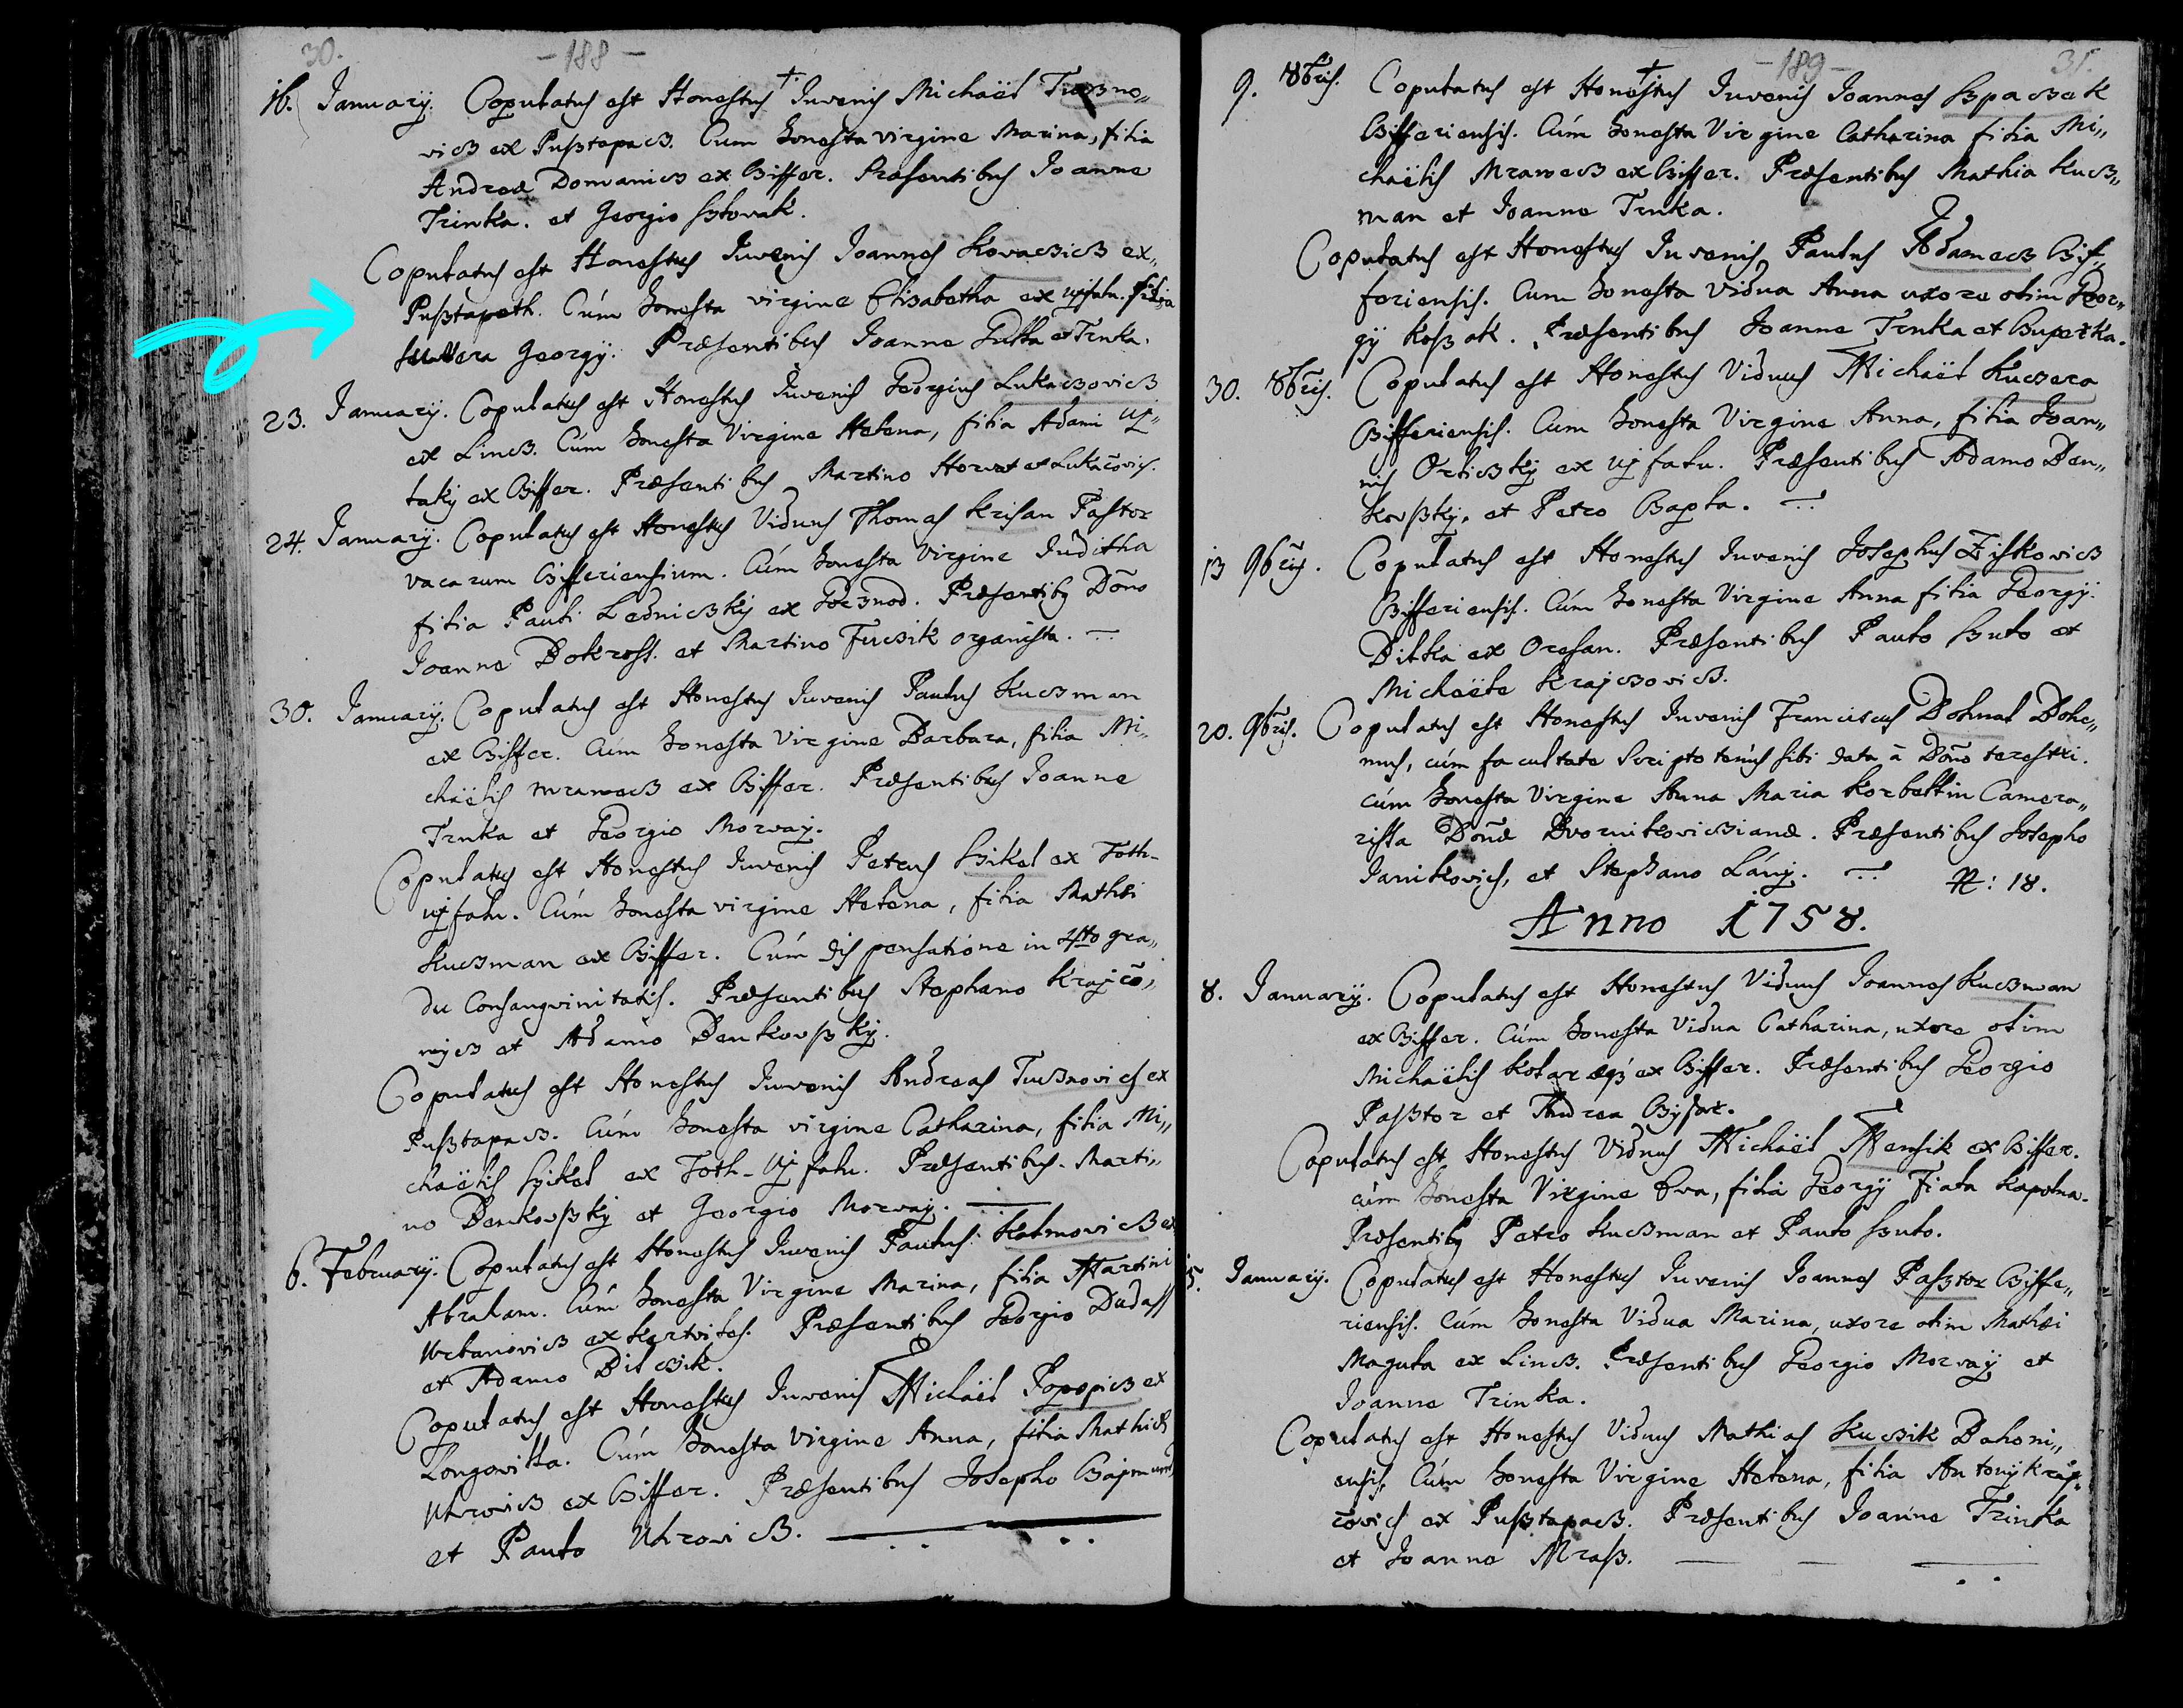 30.
- 188 -
16. Januarÿ. Copulatus est Honestus Juvenis Michaël Tuszno„
vics ex Pusztapacs. Cum honesta virgine Marina, filia
Andreæ Domanics ex Cziffer. Præsentibus Joanne
Trinka. et Georgio Szlovak.
Copulatus est Honestus Juvenis Joannes Kovacsics ex„
Pusztapath. Cúm honesta virgine Elisabetha ex ujfalu. filia
Georgÿ. Præsentibus Joanne et Trnka.
23. Januarÿ. Copulatus est Honestus Juvenis Georgius Lukacsovics
ex Lincz. Cúm honesta Virgine Helena, filia Adami Uj„
laky ex Cziffer. Præsentibus Martino Horvat et Lukačovics.
24. Januarÿ. Copulatus est Honestus Viduus Thomas Krisan Pastor
vacarum Cziffiriensium. Cúm honesta Virgine Juditha
filia Pauli Lednicsky ex Præsentibg Dōno
Joanne Bokross. et Martino Fucsik organista.
30. Januarÿ. Copulatus est Honestus Juvenis Paulus Kucsman
ex Cziffer. Cúm honesta Virgine Barbara, filia Mi„
chaëlis Mrawecz ex Cziffer. Præsentibus Joanne
Trnka et Georgio Morvaÿ.
Copulatus est Honestus Juvenis Petrus Szikel ex Toth-
ujfalu. Cúm honesta virgine Helena, filia Mathæi
Kucsman ex Cziffer. Cúm dispensatione in 4to gra„
du Consangvinitatis. Præsentibus Stephano Krajčo„
et Adamo Benkovszkÿ.
Copulatus est Honestus Juvenis Andreas Tusznovics ex
Pusztapacs. Cúm honesta virgine Catharina, filia Mi„
chaëlis Szikel ex Toth-Ujfalu. Præsentibus. Marti„
no Benkovszkÿ et Georgio Morvaÿ.
6. Februarÿ. Copulatus est Honestus Juvenis Paulus Kalmovics ex
Abraham. Cúm honesta Virgine Marina, filia Martini
Urbanovics ex Kertviles. Præsentibus Georgio Dudass
et Adamo Bilcsik.
Copulatus est Honestus Juvenis Michaël Popopics ex
Longovilla. Cúm honesta Virgine Anna, filia Mathiæ
Uhrovics ex Cziffer. Præsentibus Josepho
et Paulo Uhrovics.
- 189 -
31.
9. 8bris. Copulatus est Honestus Juvenis Joannes Szpaczek
Cziffiriensis. Cúm honesta Virgine Catharina filia Mi„
chaëlis Mrawecz ex Cziffer. Præsentibus Mathia Kucs„
man et Joanne Trnka.
Copulatus est Honestus Juvenis Paulus Adamecz Czif„
feriensis. Cum honesta Vidua Anna uxore olim Geor„
gÿ Koszok. Præsentibus Joanne Trnka et Bupetka.
30. 8bris. Copulatus est Honestus Viduus Michaël Kucsera
Cziffiriensis. Cum honesta Virgine Anna, filia Joan„
nis Orliczkÿ ex Ujfalu. Præsentibus Adamo Ben„
kovszkÿ. et Petro Bagta.
13 9bris. Copulatus est Honestus Juvenis Josephus Ziskovics
Cziffiriensis. Cúm honesta Virgine Anna filia Georgÿ.
Bilka ex Oresan. Præsentibus Paulo Szulo et
Michaële Krajcsovics.
20. 9bris. Copulatus est Honestus Juvenis Franciscus Dohnal Bohe„
mus, cúm facultate scripto tenús sibi data ā Dōno terestri.
cúm honesta Virgine Anna Maria Korbellin Camera„
rissa Dōnæ Dvornikovicsianæ. Præsentibus Josepho
Janikovics, et Stephano Lánÿ. N: 18.
Anno 1758.
8. Januarÿ. Copulatus est Honestus Viduus Joannes Kucsman
ex Cziffer. Cúm honesta Vidua Catharina, uxore olim
Michaëlis ex Cziffer. Præsentibus Georgio
Pasztor et Andrea
Copulatus est Honestus Viduus Michaël Mensik ex Cziffer.
cúm honesta Virgine Eva, filia Georgÿ Fiala Kapolna.
Præsentibg Petro Kucsman et Paulo Szulo.
15. Januarÿ. Copulatus est Honestus Juvenis Joannes Pasztor Cziffe„
riensis. Cúm honesta Vidua Marina, uxore olim Mathæi
Magula ex Lincz. Præsentibus Georgio Morvaÿ et
Joanne Trinka.
Copulatus est Honestus Viduus Mathias Kucsik Bahoni„
ensis. Cúm honesta Virgine Helena, filia Antonÿ Kraj„
čovics ex Pusztapacs. Præsentibus Joanne Trinka
et Joanne Mrasz.